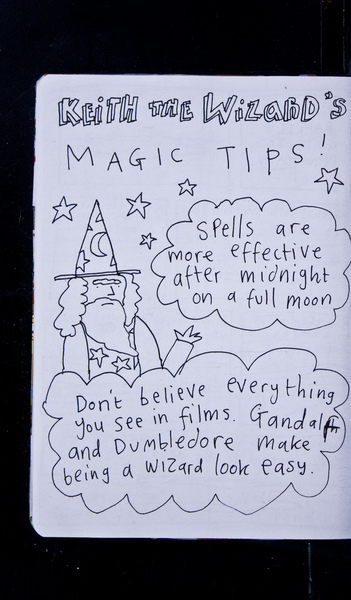 KEITH THE WIZARD'S
MAGIC TIPS!
Spells are
more effective
after midnight
on a full moon
Don't believe everything
you see in films. Gandalf
and Dumbledore make
being a wizard look easy.